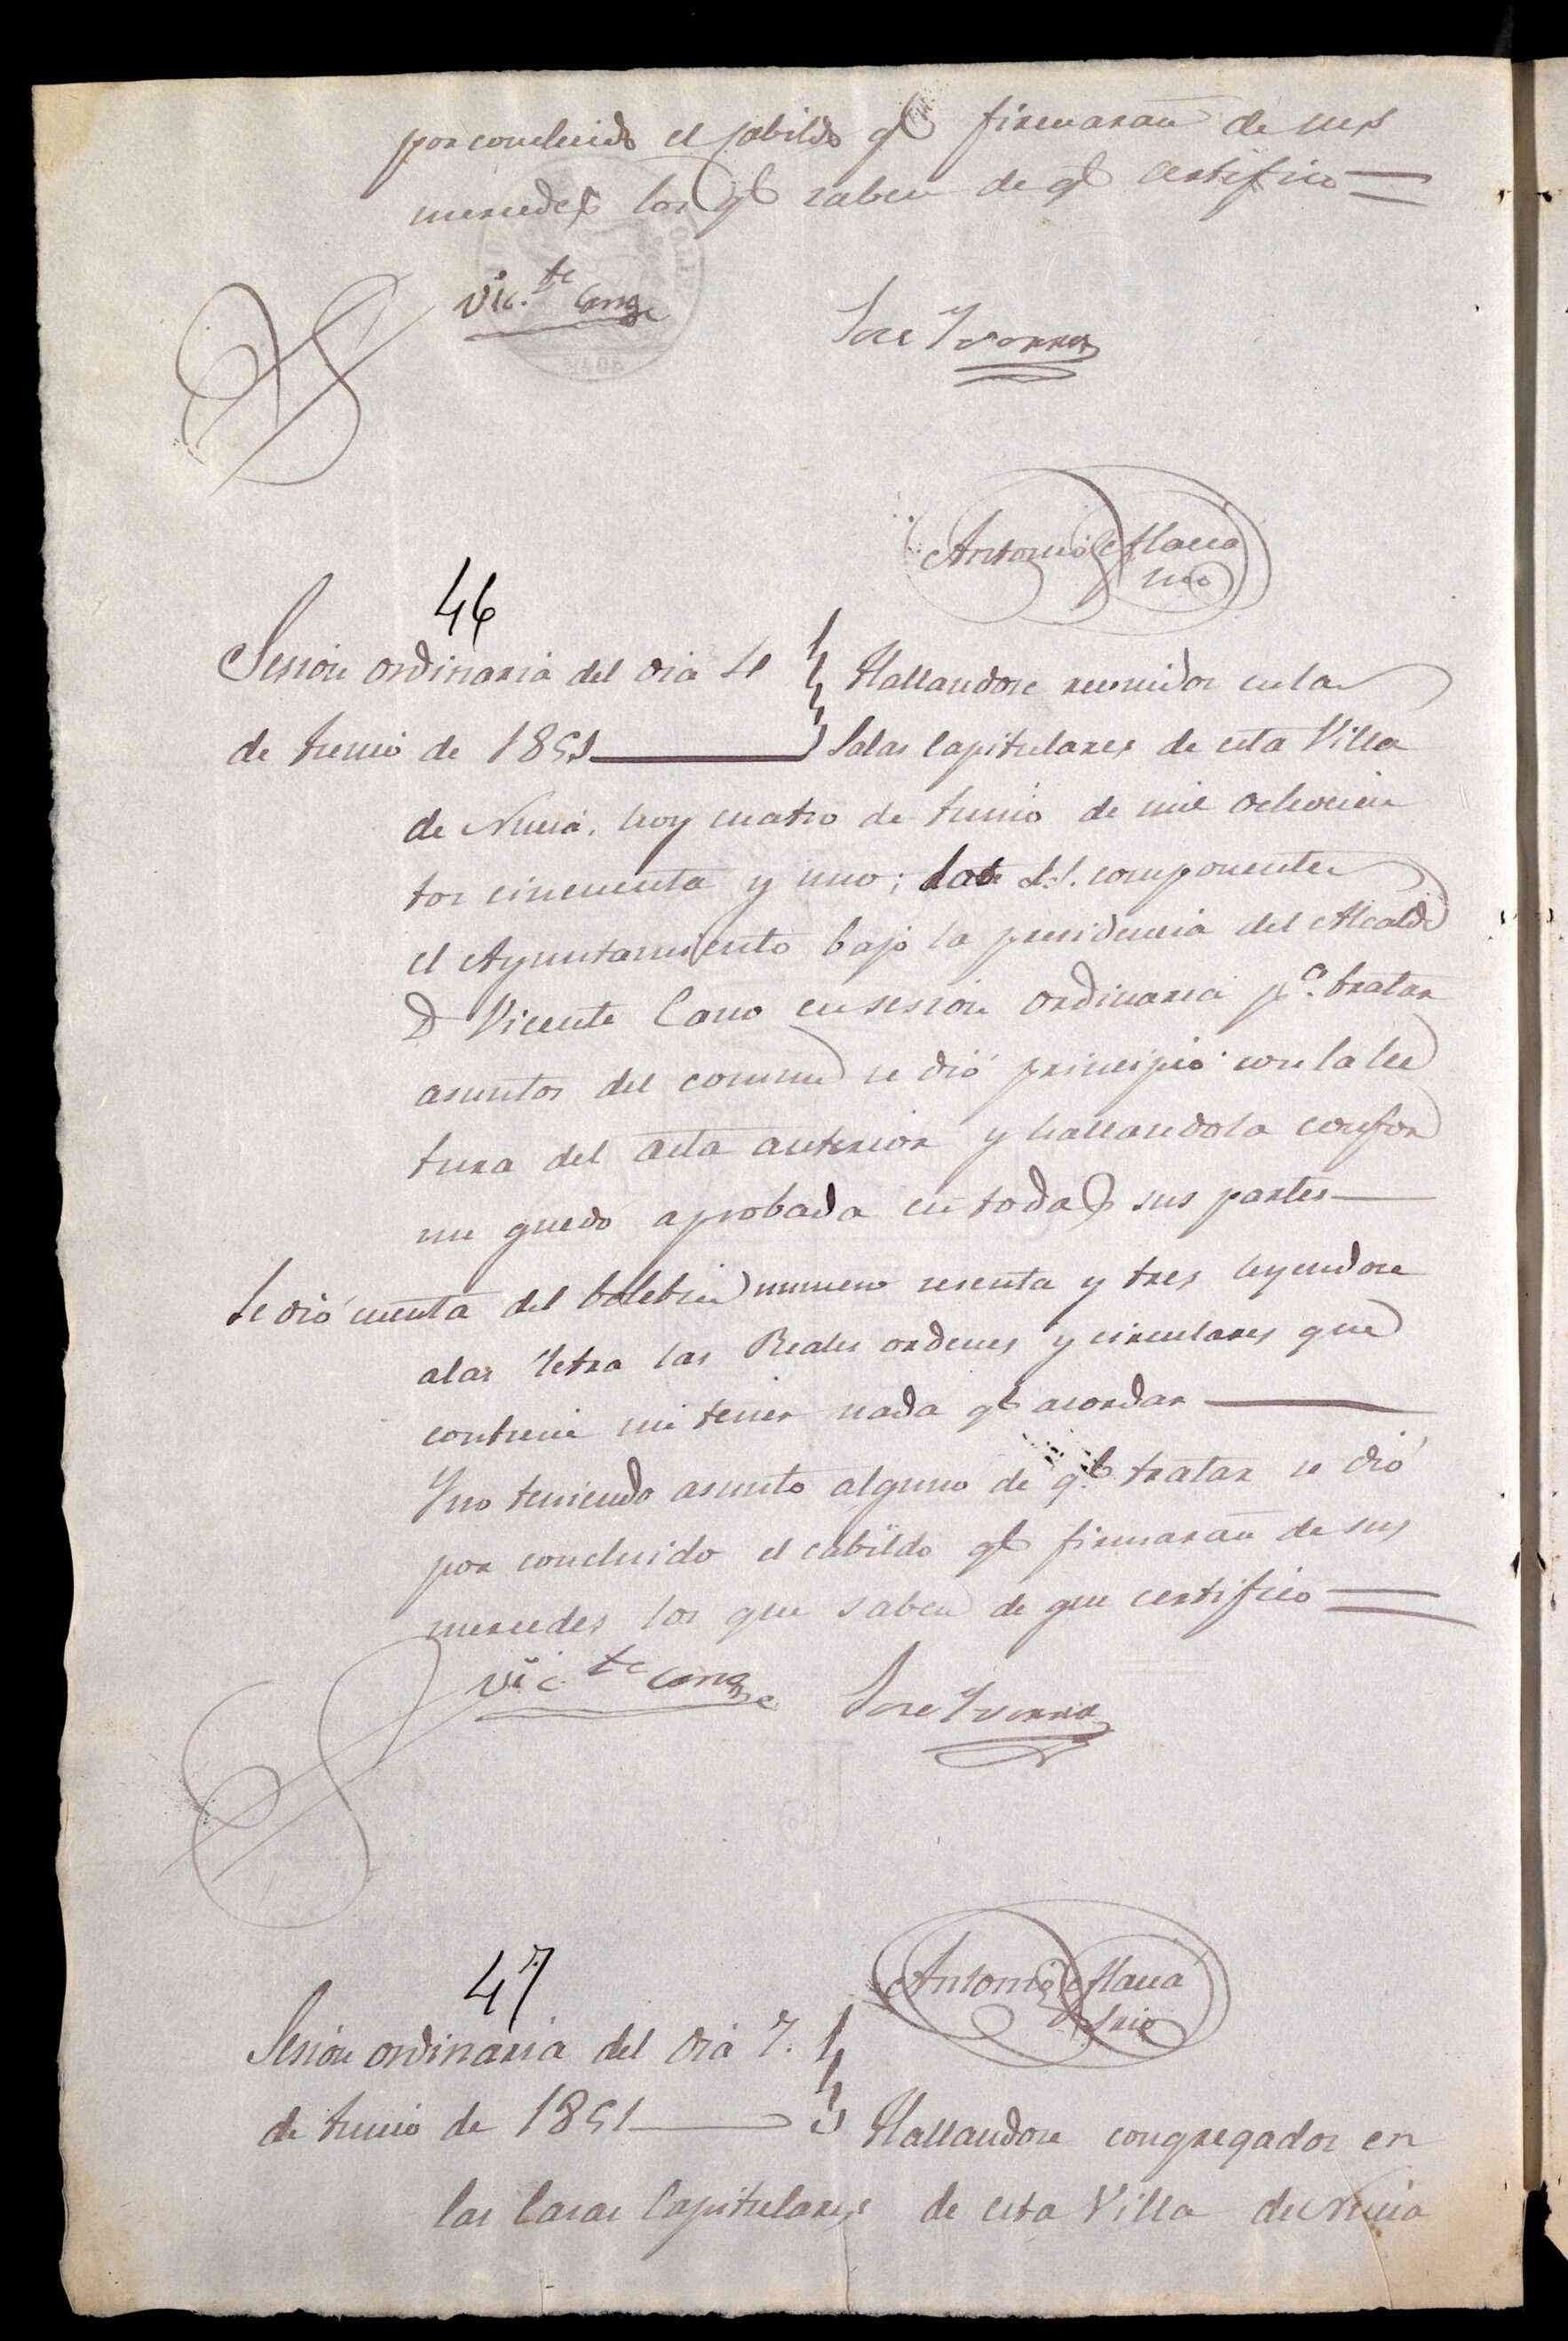 por concluido el cabildo q.e firmarán de sus
mercedes los q.e saben de q.e certifico=
Vic.te Cano
Jose Yvorra
Antonio Macia
Srio
46
Sesion ordinaria del dia 4
de Junio de 1851
Hallandose reunidos en las
Salas Capitulares de esta Villa
de Nucia, hoy cuatro de Junio de mil ochocien
tos cincuenta y uno; los S.S. componentes
el Ayuntamiento bajo la presidencia del Alcalde
D Vicente Cano en sesion ordinaria p.a tratar
asuntos del comun se dió principio con la lec
tura del acta anterior y hallandola confor
me quedó aprobada en todas sus partes
Se dió cuenta del boletin numero sesenta y tres leyendose
a la letra las Reales ordenes y circulares que
contiene sin tener nada q.e acordar
Y no teniendo asunto alguno de q.e tratar se dió
por concluido el cabildo q.e firmarán de sus
mercedes los que saben de que certifico=
Vic.te Cano
Jose Yvorra
Antonio Macia
Srio
47
Sesion ordinaria del dia 7.
de Junio de 1851
Hallandose congregados en
las Casas Capitulares de esta Villa de Nucia